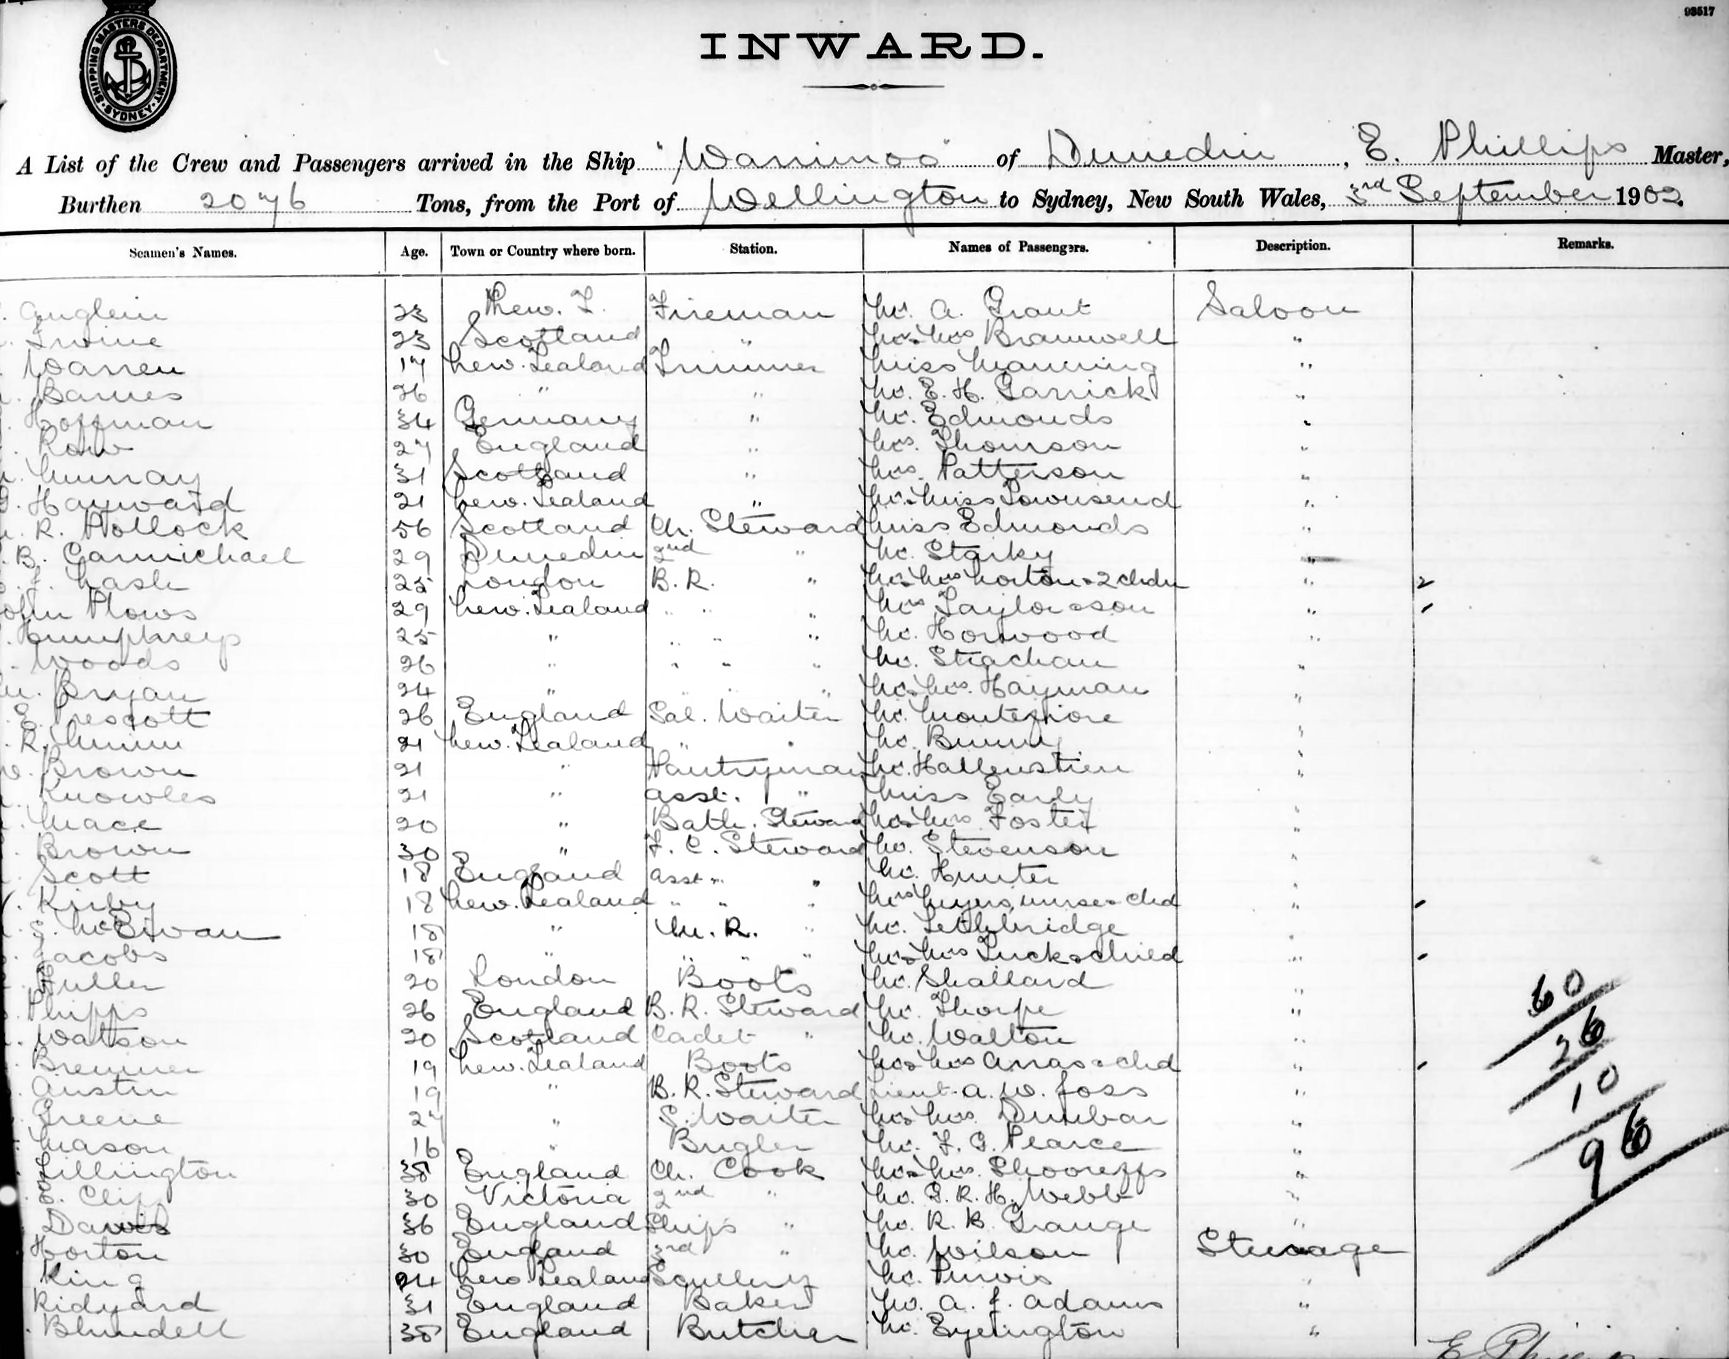 93517
SHIPPING MASTERS DEPARTMENT SYDNEY
INWARD.
A List of the Crew and Passengers arrived in the Ship "Warrimoo" of Dunedin, E. Phillips Master,
Burthen 2076 Tons, from the Port of Wellington to Sydney, New South Wales, 3rd September 1902
Seamen's Names. Age. Town or Country where born. Station. Names of Passengers. Description. Remarks.
23 New. Z. Fireman Mr. A. Grant Saloon
Irvine 23 Scotland " Mr & Mrs Bramwell "
Warren 17 New. Zealand Trimmer Miss Manning "
Barnes 26 " " Mr. E. H. Garrick "
Hoffman 34 Germany " Mr. Edmonds "
Row 27 England " Mrs. Thomson "
Murray 31 Scotland " Mrs. Patterson "
Hayward 21 New. Zealand " Mr & Miss Townsend "
R. Pollock 56 Scotland Ch. Steward Miss Edmonds "
B. Carmichael 29 Dunedin 2nd " Mr. Starky "
Nash 25 London B. R. " Mr & Mrs Norton & 2 chdn " 2
Plows 29 New. Zealand " " " Mrs Taylor & son "
Humphreys 25 " " " " Mr. Horwood "
Woods 26 " " " " Mr. Strachan "
Bryan 24 " " " " Mr & Mrs. Hayman "
Prescott 26 England Sal. Waiter Mr. Montefiore "
R. 21 New. Zealand " " Mr. Binny "
Brown 21 " Pantryman Mr. Hallenstien "
Knowles 21 " Asst. " Miss Early "
Mace 20 " Bath. Steward Mr & Mrs Foster "
Brown 30 " F. C. Steward Mr. Stevenson "
Scott 18 England Asst " " Mr. Hunter "
Kirby 18 New. Zealand " " " Mrs Myers, nurse & chd "
McEwan 18 " M. R. " Mr. Lethbridge "
Jacobs 18 " " " " Mr & Mrs Tuck & child "
Fuller 20 London Boots Mr. Shallard "
Phipps 26 England B. R. Steward Mr. Thorpe "
Watson 20 Scotland Cadet " Mr. Walton "
Bremner 19 New. Zealand Boots Mr & Mrs & chd "
Austin 19 " B. R. Steward Lieut. A. W. Joss "
Greene 24 " S. Waiter Mr & Mrs. Dunbar "
Mason 16 " Bugler Mr. F. G. Pearce "
Lillington 38 England Ch. Cook Mr & Mrs. "
Cliff 30 Victoria 2nd " Mr. G. R. H. Webb "
Davis 36 England Ships " Mr. R. B. Grange "
Horton 30 England 3rd " Mr. Wilson Steerage
King 24 New Zealand Scullery Mr. Purvis "
Ridyard 31 England Baker Mr. A. J. Adams "
Blundell 38 England Butcher Mr. Eyerington "
60
26
10
96
E. Phillips